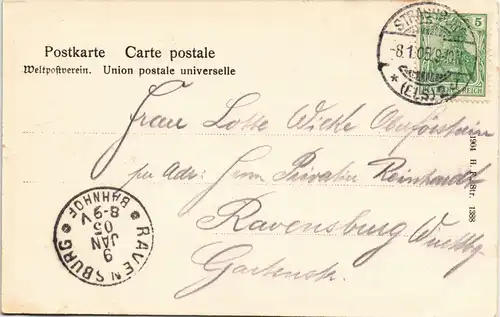 Postkarte Carte postale
Weltpostverein. Union postale universelle
STRASSBURG
-8.1.05.9-10
* (ELS) 2
5
REICH
Frau Lotte Wicke Oberförsterin
per Adr: Herrn Privatier Reinhardt
Ravensburg Württbg
Gartenstr.
RAVENSBURG
9
JAN
05
8-9V
BAHNHOF
1904 H. Str. 1388